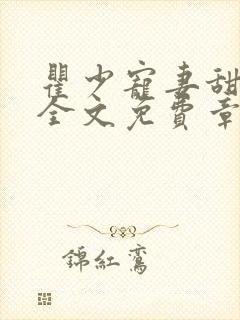 瞿少寵妻甜
全文免費章
錦紅鸞